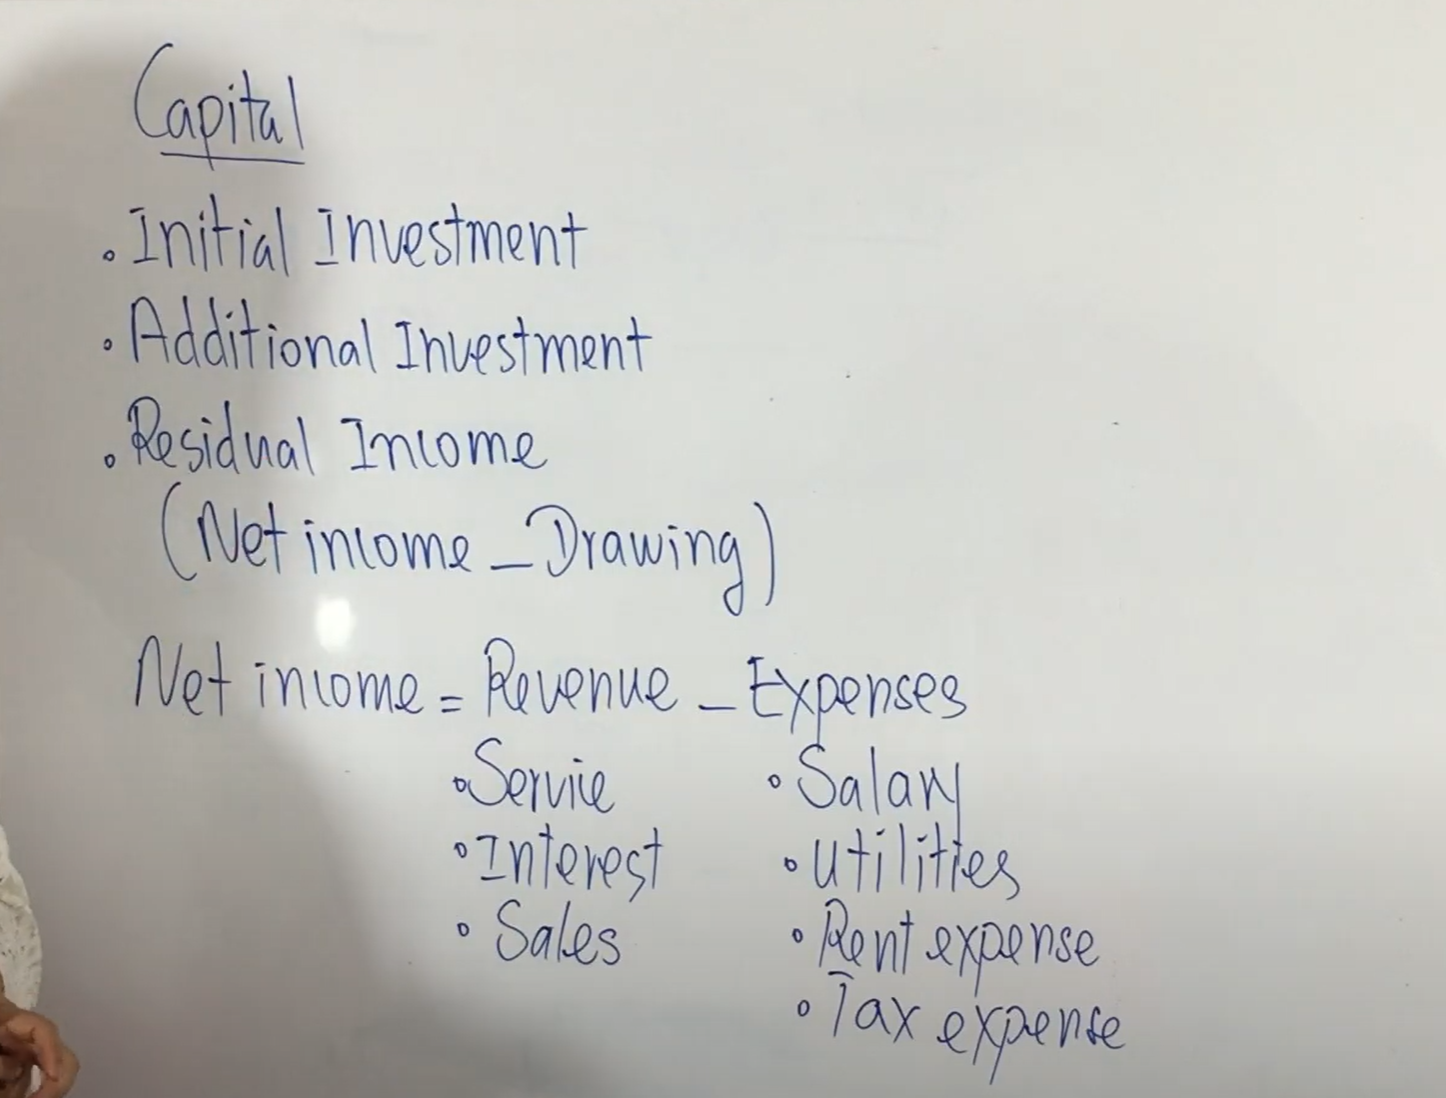 Capital
• Initial Investment
• Additional Investment
• Residual Income
(Net income - Drawing)
Net income = Revenue - Expenses
• Service • Salary
• Interest • Utilities
• Sales • Rent expense
• Tax expense